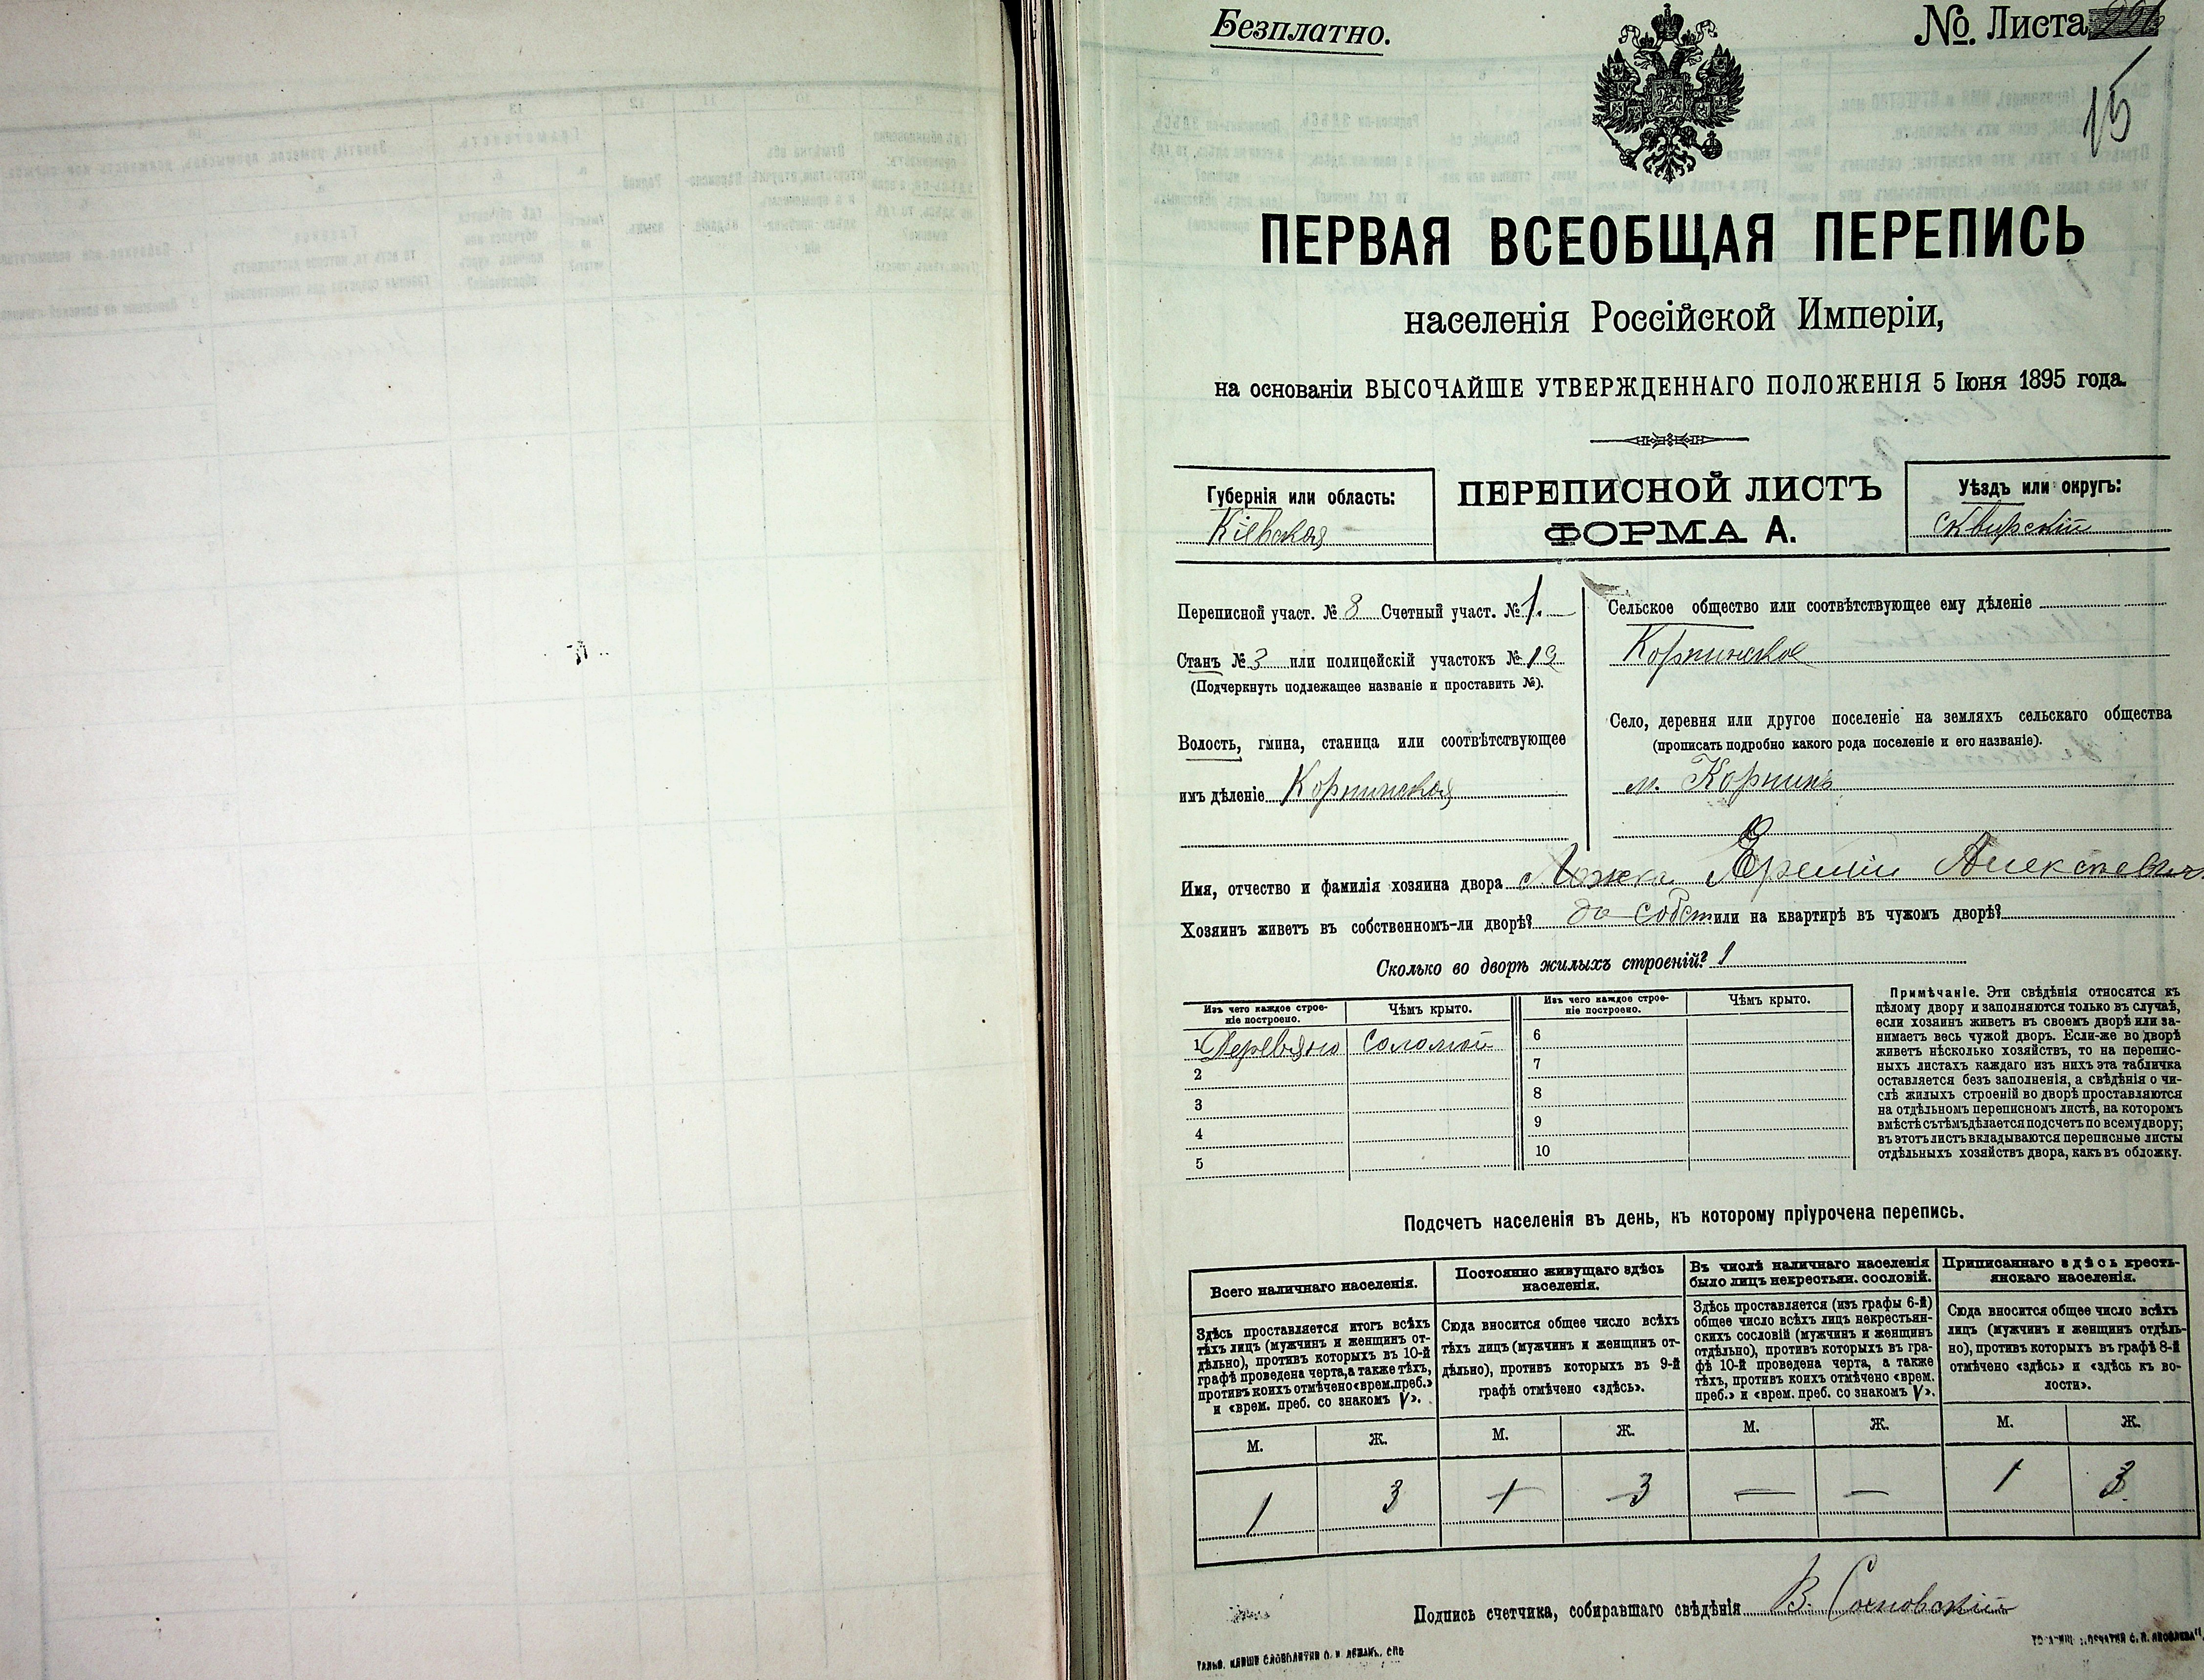 Безплатно.
№. Листа
15
ПЕРВАЯ ВСЕОБЩАЯ ПЕРЕПИСЬ
населенія Россійской Имперіи,
на основаніи ВЫСОЧАЙШЕ УТВЕРЖДЕННАГО ПОЛОЖЕНІЯ 5 Іюня 1895 года.
Губернія или область:
Кіевская
ПЕРЕПИСНОЙ ЛИСТЪ
ФОРМА А.
Уѣздъ или округъ:
Сквирскій
Переписной участ. № 8 Счетный участ. № 1.
Станъ № 3 или полицейскій участокъ № 19
(Подчеркнуть подлежащее названіе и проставить №).
Волость, гмина, станица или соотвѣтствующее
имъ дѣленіе Корнинская
Сельское общество или соотвѣтствующее ему дѣленіе
Корнинское
Село, деревня или другое поселеніе на земляхъ сельскаго общества
(прописать подробно какого рода поселеніе и его названіе).
м. Корнинъ
Имя, отчество и фамилія хозяина двора Ложка Еремій Алексѣевичъ
Хозяинъ живетъ въ собственномъ-ли дворѣ? да собст или на квартирѣ въ чужомъ дворѣ?
Сколько во дворѣ жилыхъ строеній? 1
Изъ чего каждое строе-
ніе построено.
Чѣмъ крыто.
Изъ чего каждое строе-
ніе построено.
Чѣмъ крыто.
1 Деревяно Соломой 6
2 7
3 8
4 9
5 10
Примѣчаніе. Эти свѣдѣнія относятся къ
цѣлому двору и заполняются только въ случаѣ,
если хозяинъ живетъ въ своемъ дворѣ или за-
нимаетъ весь чужой дворъ. Если-же во дворѣ
живетъ нѣсколько хозяйствъ, то на перепис-
ныхъ листахъ каждаго изъ нихъ эта табличка
оставляется безъ заполненія, а свѣдѣнія о чи-
слѣ жилыхъ строеній во дворѣ проставляются
на отдѣльномъ переписномъ листѣ, на которомъ
вмѣстѣ съ тѣмъ дѣлается подсчетъ по всему двору;
въ этотъ листъ вкладываются переписные листы
отдѣльныхъ хозяйствъ двора, какъ въ обложку.
Подсчетъ населенія въ день, къ которому пріурочена перепись.
Всего наличнаго населенія.
Здѣсь проставляется итогъ всѣхъ
тѣхъ лицъ (мужчинъ и женщинъ от-
дѣльно), противъ которыхъ въ 10-й
графѣ проведена черта, а также тѣхъ,
противъ коихъ отмѣчено «врем. преб.»
и «врем. преб. со знакомъ V».
Постоянно живущаго здѣсь
населенія.
Сюда вносится общее число всѣхъ
тѣхъ лицъ (мужчинъ и женщинъ от-
дѣльно), противъ которыхъ въ 9-й
графѣ отмѣчено «здѣсь».
Въ числѣ наличнаго населенія
было лицъ некрестьян. сословій.
Здѣсь проставляется (изъ графы 6-й)
общее число всѣхъ лицъ некрестьян-
скихъ сословій (мужчинъ и женщинъ
отдѣльно), противъ которыхъ въ гра-
фѣ 10-й проведена черта, а также
тѣхъ, противъ коихъ отмѣчено «врем.
преб.» и «врем. преб. со знакомъ V».
Приписаннаго здѣсь кресть-
янскаго населенія.
Сюда вносится общее число всѣхъ
лицъ (мужчинъ и женщинъ отдѣль-
но), противъ которыхъ въ графѣ 8-й
отмѣчено «здѣсь» и «здѣсь къ во-
лости».
М. Ж. М. Ж. М. Ж. М. Ж.
1 3 1 3 — — 1 3
Подпись счетчика, собиравшаго свѣдѣнія В. Сосновскій